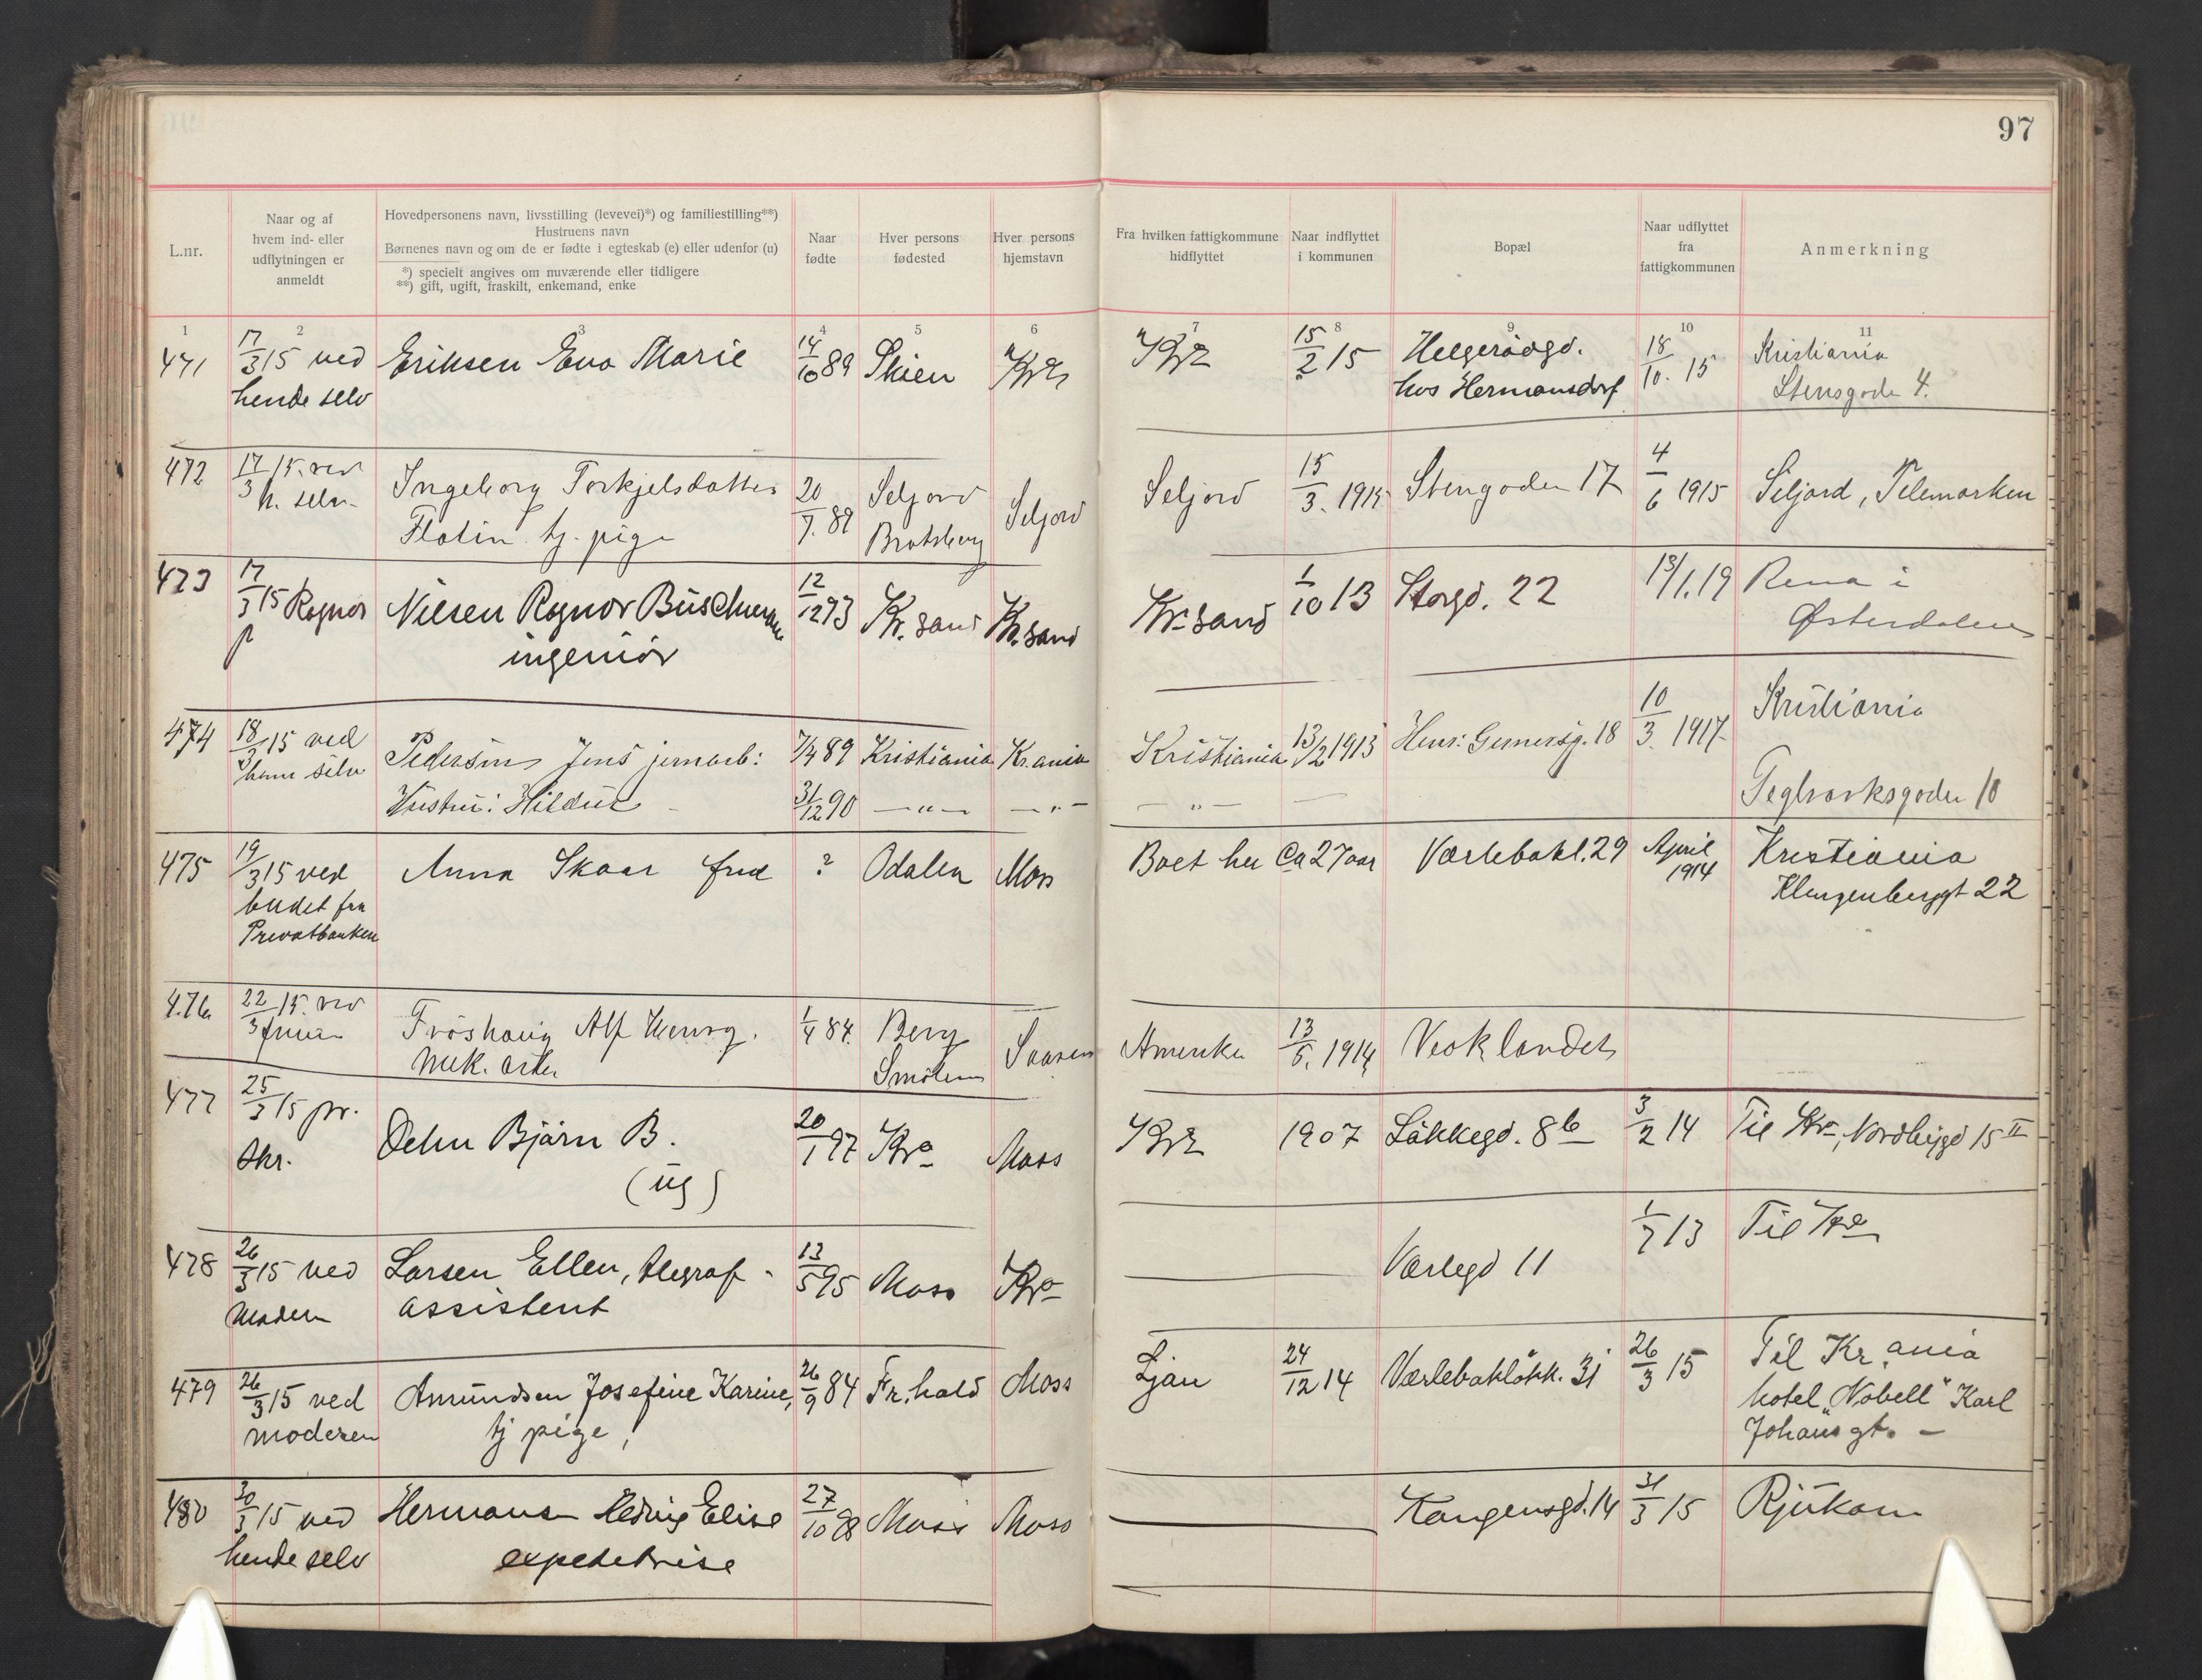 97
L.nr.
Naar og af
hvem ind- eller
udflytningen er
anmeldt
Hovedpersonens navn, livsstilling (levevei)*) og familiestilling**)
Hustruens navn
Børnenes navn og om de er fødte i egteskab (e) eller udenfor (u)
*) specielt angives om nuværende eller tidligere
**) gift, ugift, fraskilt, enkemand, enke
Naar
fødte
Hver persons
fødested
Hver persons
hjemstavn
Fra hvilken fattigkommune
hidflyttet
Naar indflyttet
i kommunen
Bopæl
Naar udflyttet
fra
fattigkommunen
Anmerkning
1 2 3 4 5 6 7 8 9 10 11
471 17/3 15 ved Eriksen Eva Marie 14/10 89 Skien Kra Kra 15/2 15 Helgerödgd. 18/10. 15 Kristiania
hende selv hos Hermansdorf Stensgade 4.
472 17/3 15. ved Ingeborg Torkjelsdatter 20/7. 89 Seljord Seljord Seljord 15/3. 1915 Stengaden 17 4/6 1915 Seljord, Telemarken
h. selv. Flatin. tj. pige Bratsberg
473 17/3 15 Ragnar Nilsen Ragnar Buschmann 12/12 93 Kr. sand Kr. sand Kr. sand 1/10 13 Storgd. 22 13/1.19 Rena i
ingeniör Østerdalen
474 18/3 15 ved Pedersen Jens jernarb: 7/4 89 Kristiania Kr.ania Kristiania 13/2 1913 Henr: Gernersg. 18 10/3. 1917 Kristiania
ham selv Hustru: Hildur 31/12 90 — " — — " — — " — — Teglverksgaden 10
475 19/3 15 ved Anna Skaar frue ? Odalen Moss Boet her Ca 27 aar Værlebakl. 29 April 1914 Kristiania
budet fra Klingenberggt 22
Privatbanken
476 22/3 15. ved Fröshaug Alf Henry. 1/4 84. Berg Amerika 13/5. 1914 Verklandet
fruen mek. arb. Smålenene
477 25/3 15 pr. Dehn Bjärn B. 20/1 97 Kra Moss Kra 1907 Låkkegd. 8b 3/2 14 Til Kra, Nordbygd 15 II
skr. (ug)
478 26/3 15 ved Larsen Ellen, telegraf- 13/5 95 Moss Kra — Værlegd 11 1/7 13 Til Kra
moderen assistent
479 26/3 15 ved Amundsen Josefine Karine, 26/9 84 Fr.hald Moss Ljan 24/12 14 Værlebakløkk. 31 26/3 15 Til Kr.ania
moderen tj pige, hotel „Nobell" Karl
Johans gt. —
480 30/3 15 ved Hermansen Hedvig Elise 27/10 98 Moss Moss — Kongensgd. 14 31/3 15 Rjukan
hende selv expeditrise